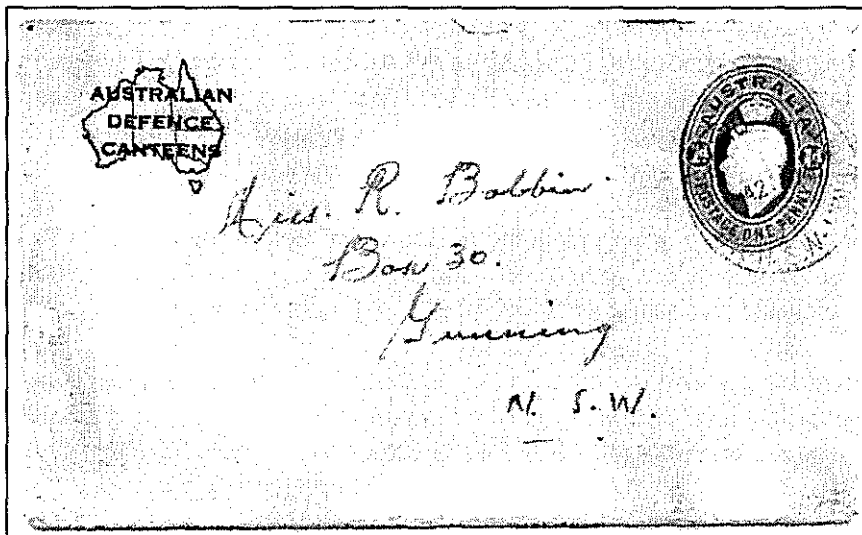 AUSTRALIAN
DEFENCE
CANTEENS
AUSTRALIA
POSTAGE ONE PENNY
42
N.S.W.
Miss. R. Bobbin.
Box 30.
Gunning
N. S. W.